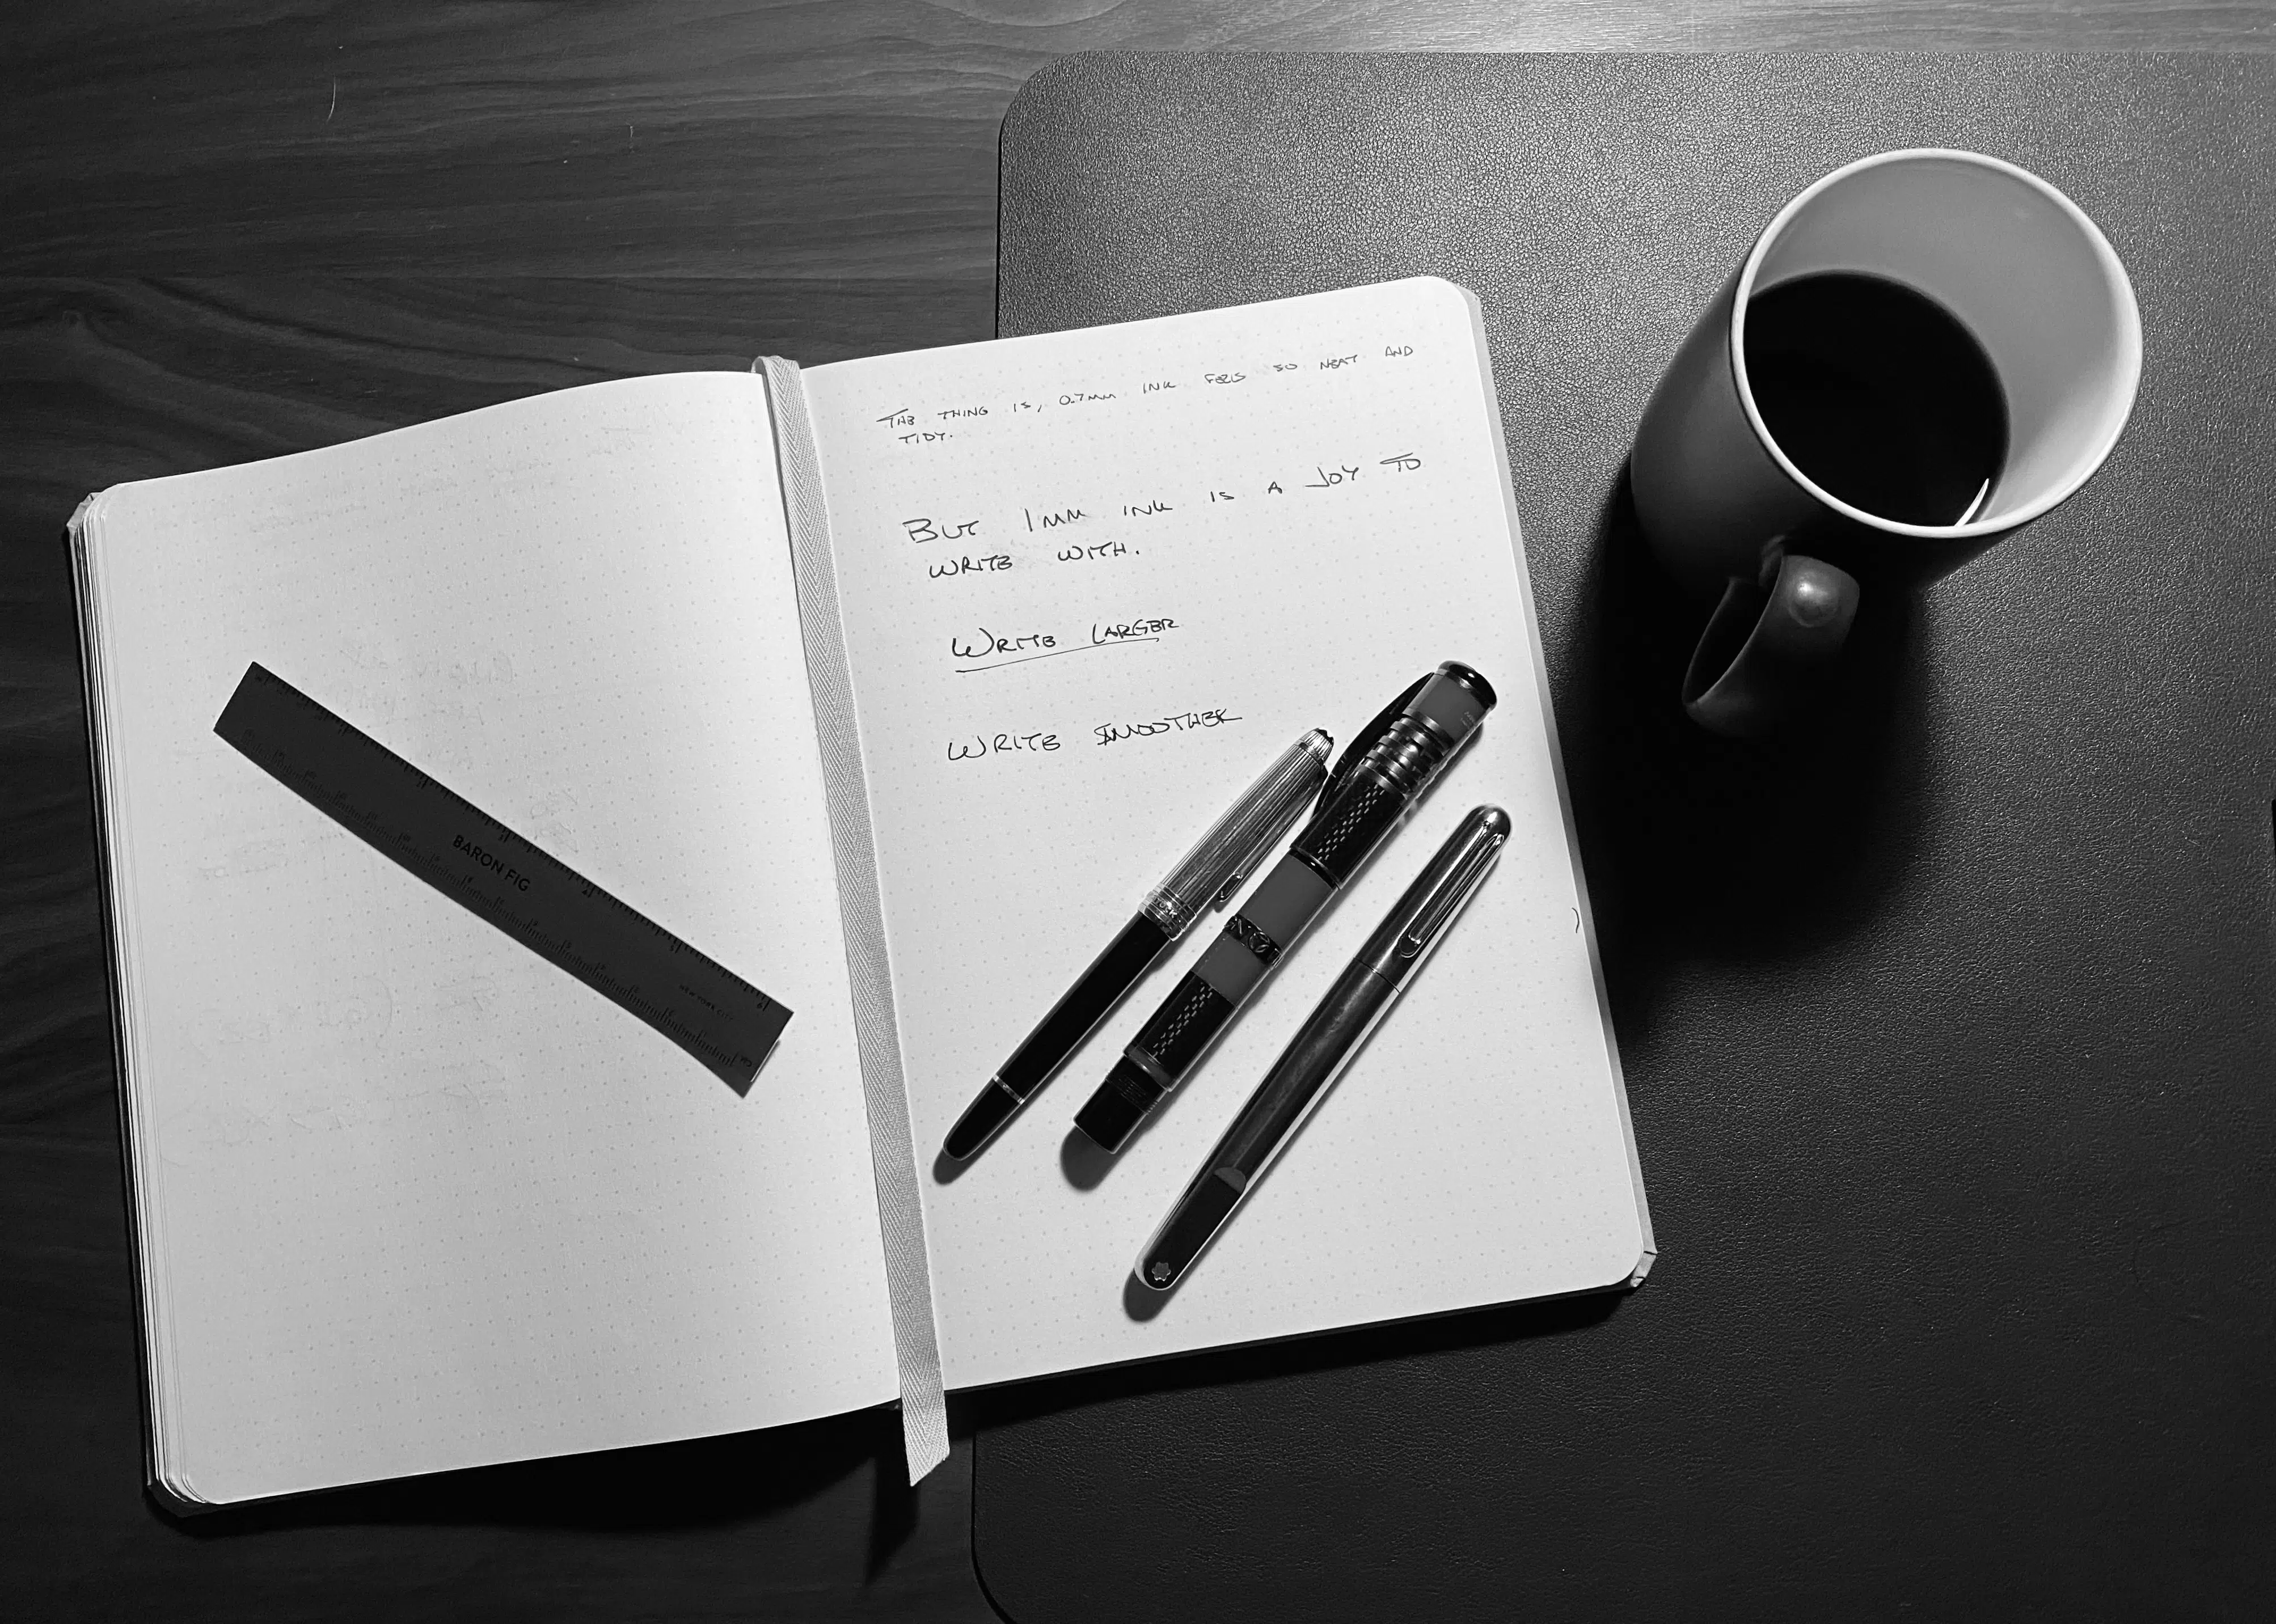 THE THING IS, 0.7MM INK FEELS SO NEAT AND
TIDY.
BUT 1MM INK IS A JOY TO
WRITE WITH.
WRITE LARGER
WRITE SMOOTHER
BARON FIG
NEW YORK CITY